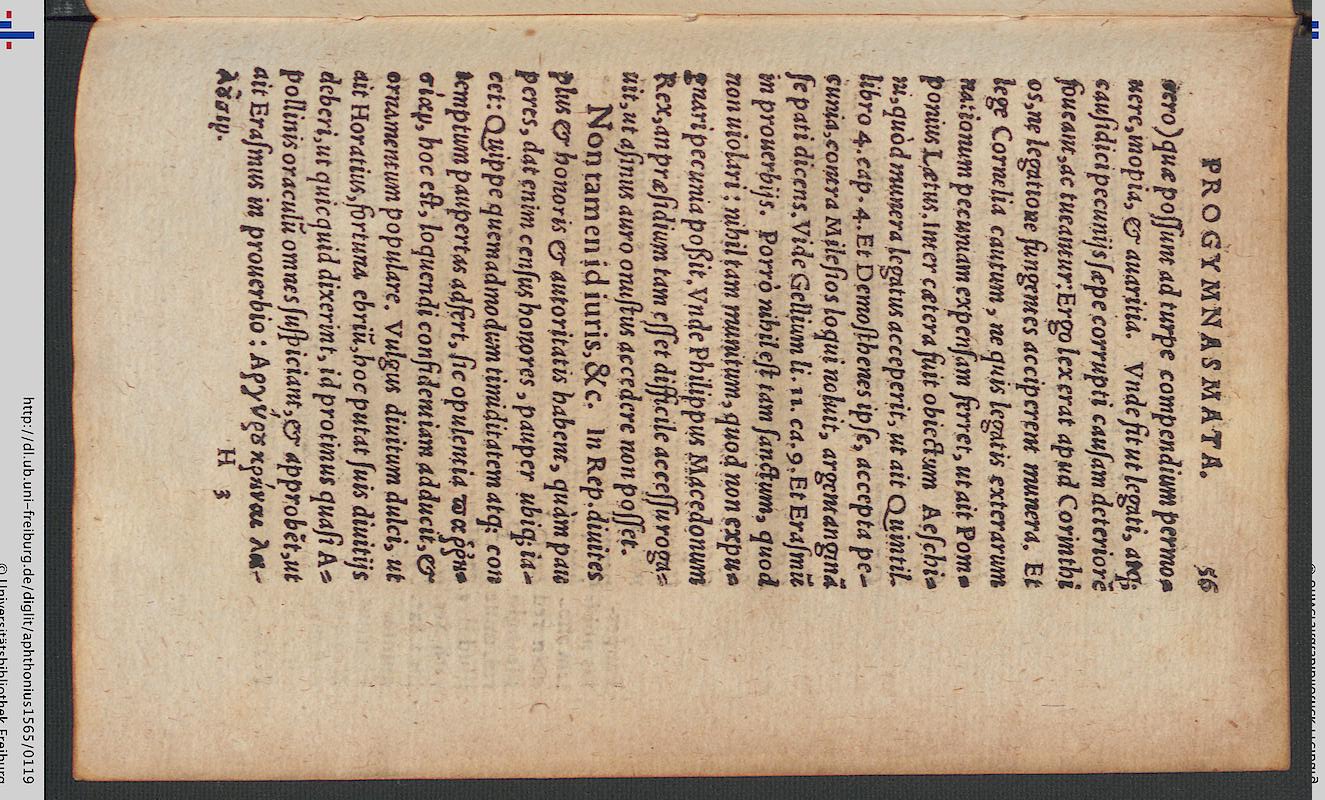 PROGYMNASMATA. 56
uero) quæ poſſunt ad turpe compendium permo-
uere, inopia, & auaritia. Vnde fit ut legati, atq;
cauſidici pecunijs ſæpe corrupti cauſam deteriorē
foueant, ac tueantur: Ergo lex erat apud Corinthi
os, ne legatione fungentes acciperent munera. Et
lege Cornelia cautum, ne quis legatis exterarum
nationum pecuniam expenſam ferret, ut ait Pom-
ponius Lætus. Inter cætera fuit obiectum Aeſchi-
ni, quòd munera legatus acceperit, ut ait Quintil.
libro 4. cap. 4. Et Demoſthenes ipſe, accepta pe-
cunia, contra Mileſios loqui noluit, argentanginā
ſe pati dicens. Vide Gellium li. 11. ca. 9. Et Eraſmū
in prouerbijs. Porrò nihil eſt tam ſanctum, quod
non uiolari: nihil tam munitum, quod non expu-
gnari pecunia poßit. Vnde Philippus Macedonum
Rex, an præſidium tam eſſet difficile acceſſu roga-
uit, ut aſinus auro onuſtus accedere non poſſet.
Non tamen id iuris, &c. In Rep. diuites
plus & honoris & autoritatis habent, quàm pau
peres, dat enim cenſus honores, pauper ubiq; ia-
cet: Quippe quemadmodum timiditatem atq; con
temptum paupertas adfert, ſic opulentia παῤῥη-
σίαν, hoc eſt, loquendi confidentiam adducit, &
ornamentum populare. Vulgus diuitum dulci, ut
ait Horatius, fortuna ebriū, hoc putat ſuis diuitijs
deberi, ut quicquid dixerint, id protinus quaſi A-
pollinis oraculū omnes ſuſpiciant, & approbēt, ut
ait Eraſmus in prouerbio: Αργύρου κρῆναι λα-
λοῦσιν.
H 3
http://dl.ub.uni-freiburg.de/diglit/aphthonius1565/0119
© Universitätsbibliothek Freiburg